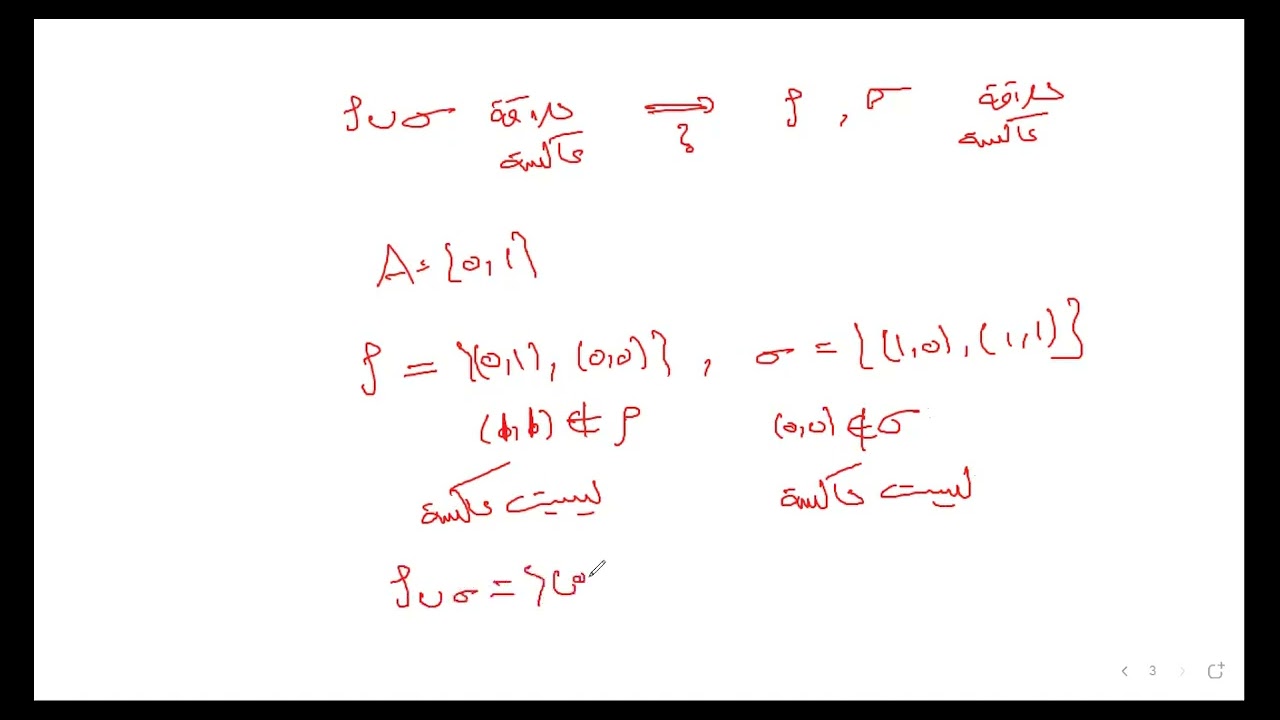 ρ∪σ علاقة ⟹ ρ , σ علاقة
عاكسة ? عاكسة
A = {0,1}
ρ = {(0,1), (0,0)} , σ = {(1,0), (1,1)}
(1,1) ∉ ρ (0,0) ∉ σ
ليست عاكسة ليست عاكسة
ρ∪σ = {(0
< 3 >